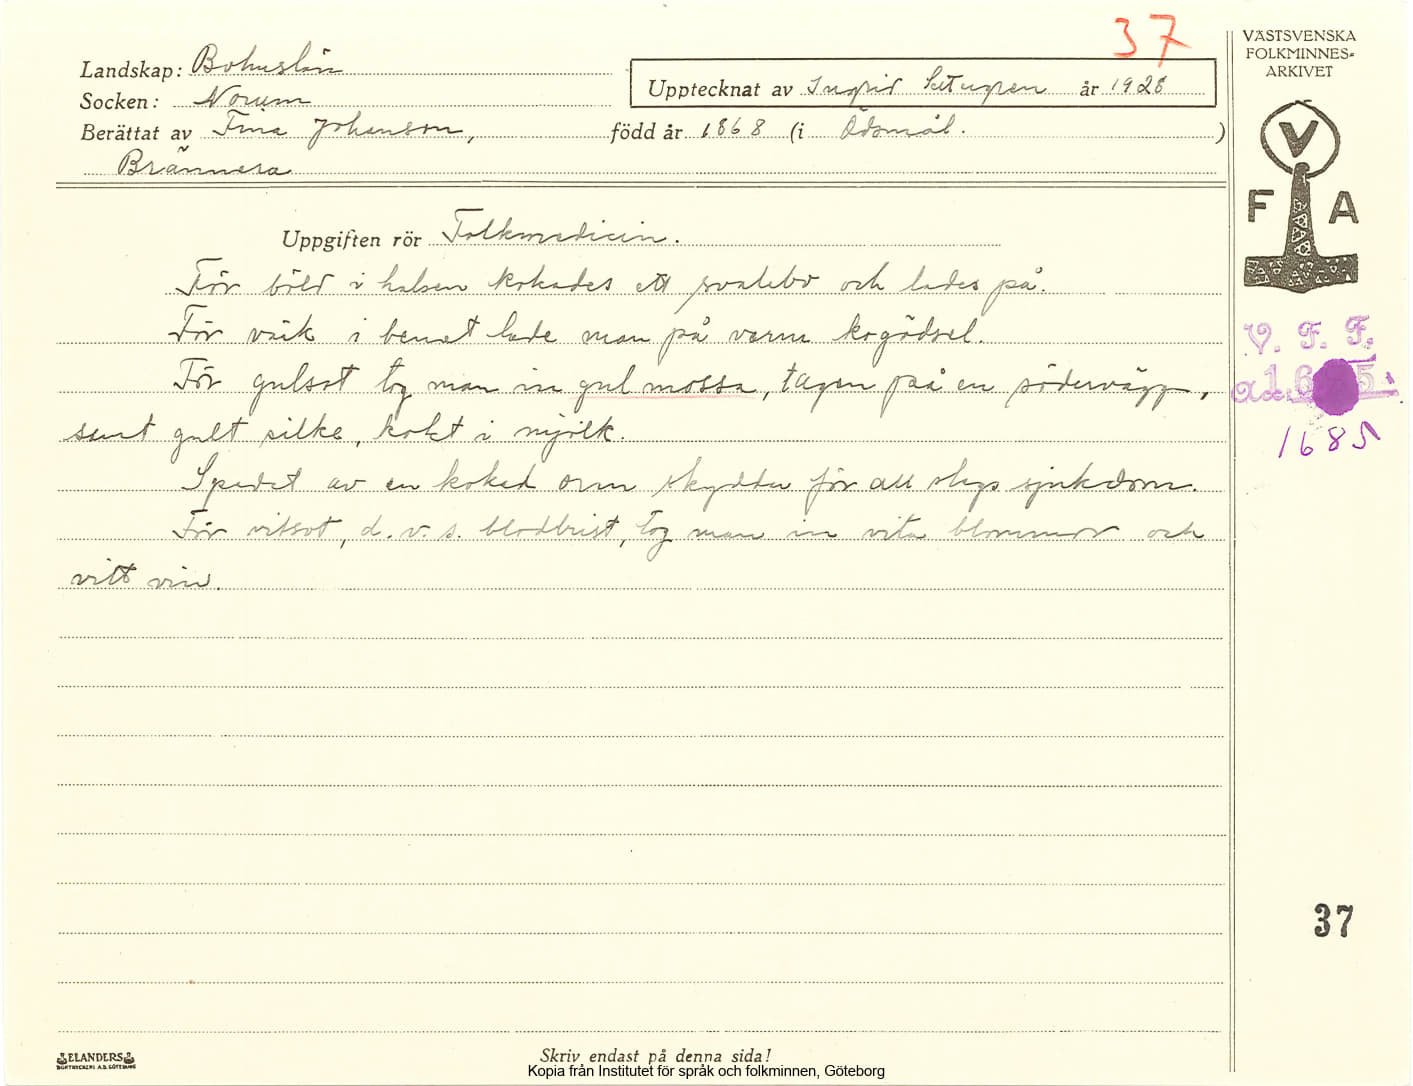 37
VÄSTSVENSKA
FOLKMINNES=
ARKIVET
Landskap: Bohuslän
Socken: Norum
Upptecknat av Ingrid år 1928
Berättat av Tina Johanson, född år 1868 (i Ödsmål.)
Brännera
V
F A
Uppgiften rör Folkmedicin.
För böld i halsen kokades ett svalebo och lades på.
För värk i benet lade man på varm kogödsel.
För gulsot tog man in gul mossa, tagen på en södervägg,
samt gult silke, kokt i mjölk.
Spadet av en kokad orm skyddar för all slags sjukdom.
För vitsot, d.v.s. blodbrist, tog man in vita blommor och
vitt vin.
V. F. F.
1685
37
ELANDERS
BOKTRYCKERI A.B. GÖTEBORG
Skriv endast på denna sida!
Kopia från Institutet för språk och folkminnen, Göteborg